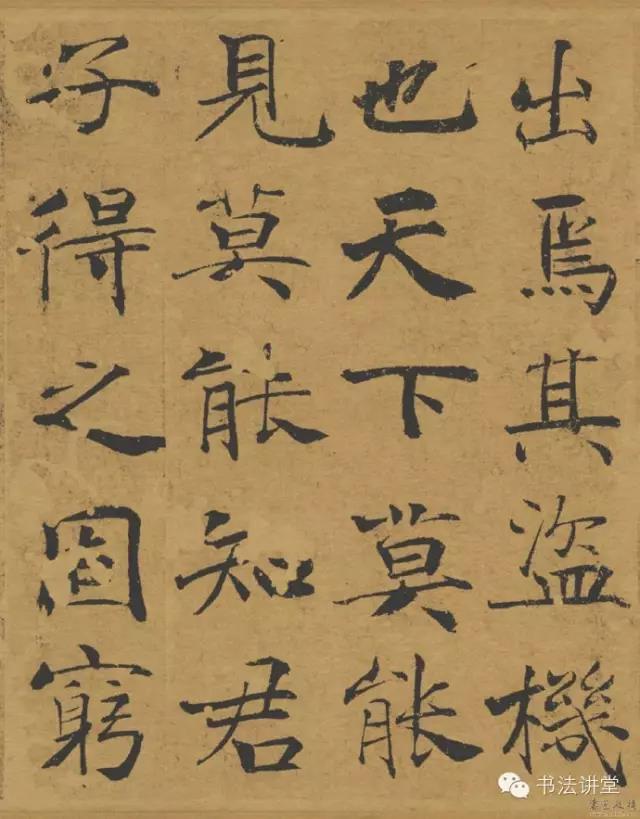 出焉其盜機
也天下莫能
見莫能知君
子得之固窮
书法讲堂